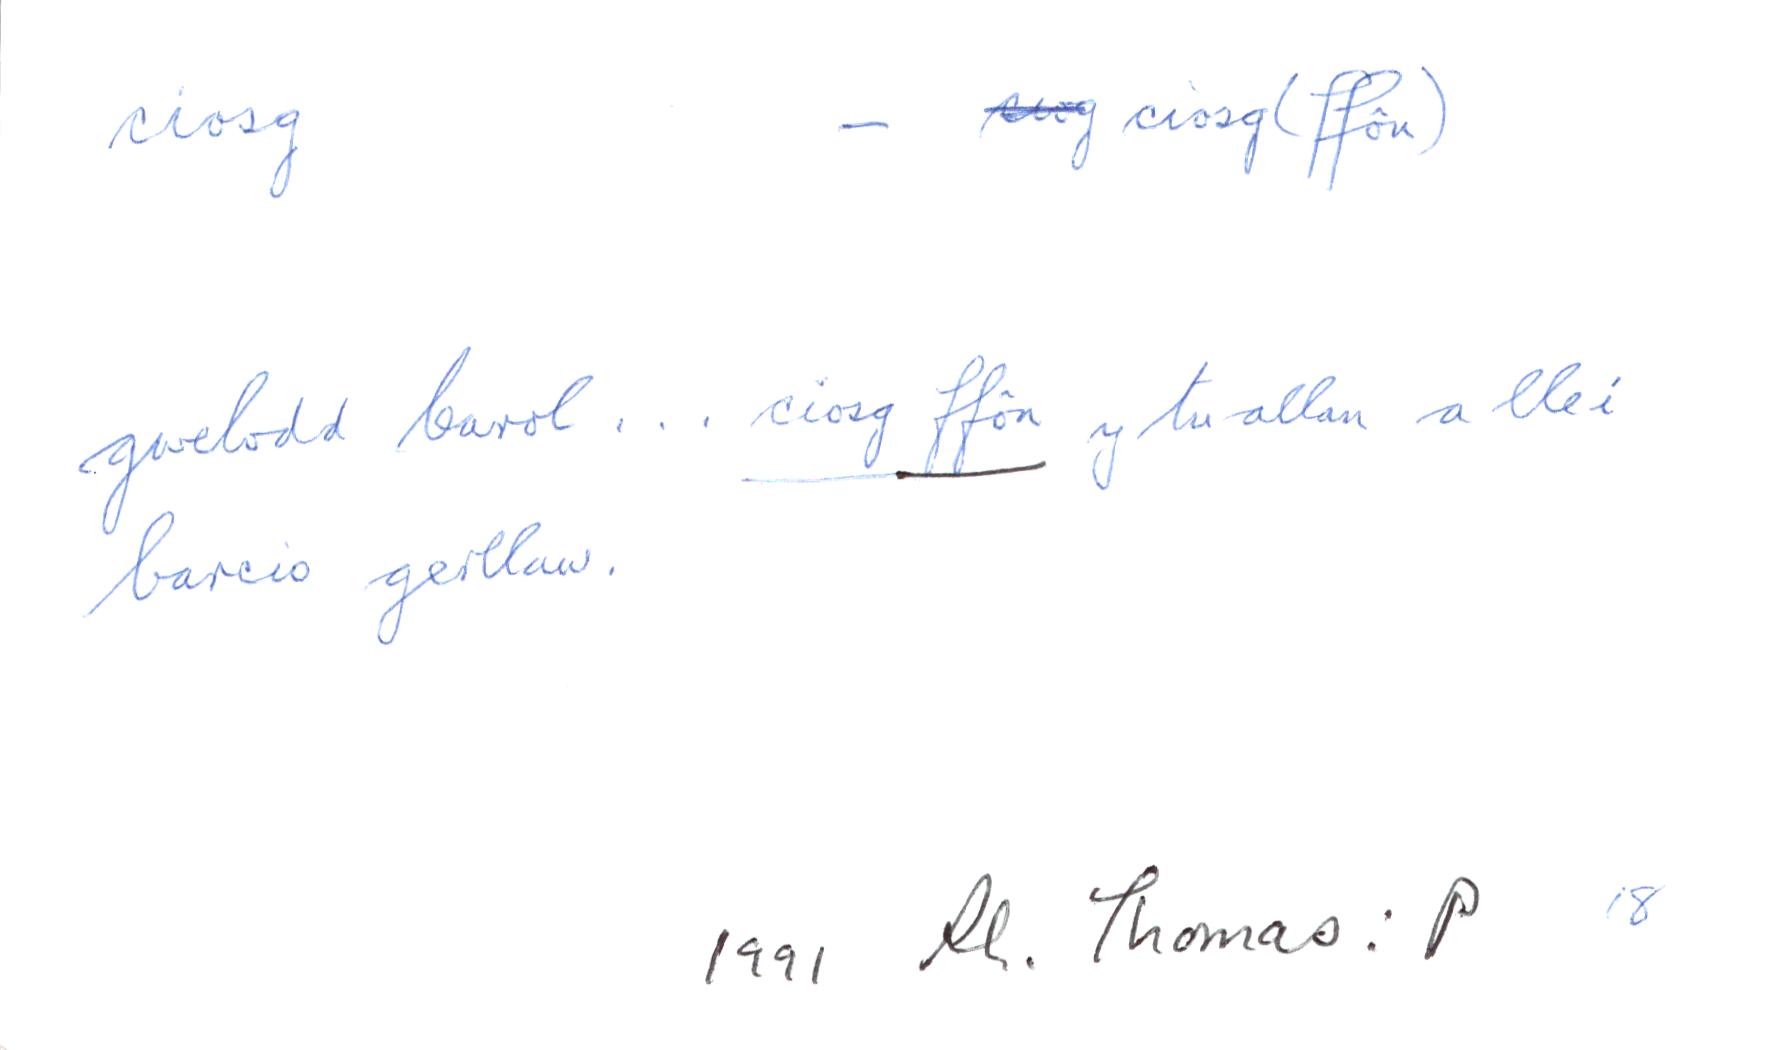 ciosg – ciosg (ffôn)
gwelodd Carol ... ciosg ffôn y tu allan a lle i
barcio gerllaw.
1991 Rh. Thomas: P 18